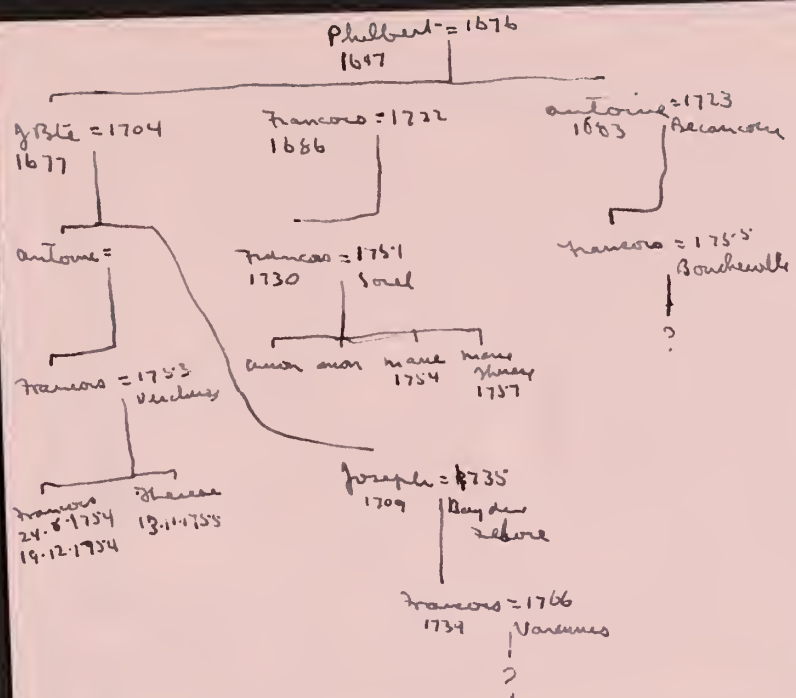 Philbert = 1676
1647
J Bte = 1704
1677
Francois = 1722
1686
Antoine = 1723
1683 Becancour
Antoine =
Francois = 1751
1730 Sorel
Francois = 1755
Boucherville
?
anon anon Marie
1754
Marie
Therese
1757
Francois = 1753
Vercheres
Francois
24.8.1754
19.12.1754
Therese
13.11.1755
Joseph = 1735
1709 Bay du
Febvre
Francois = 1766
1739 Varennes
?